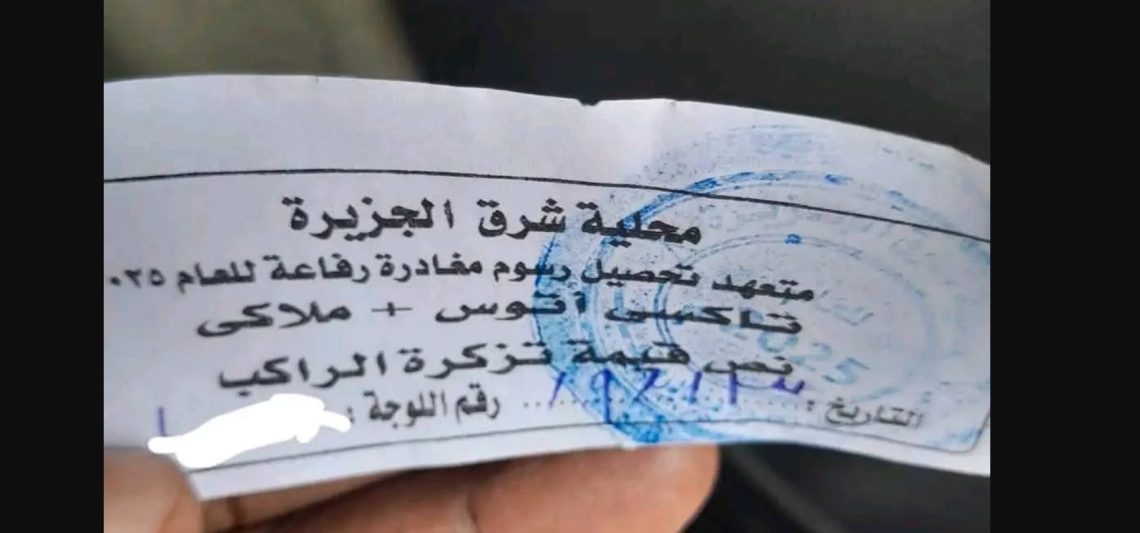 محلية شرق الجزيرة
متعهد تحصيل رسوم مغادرة رفاعة للعام ٠٢٥
تاكسى أتوس + ملاكى
نص قيمة تزكرة الراكب
التاريخ : رقم اللوحة :
2025